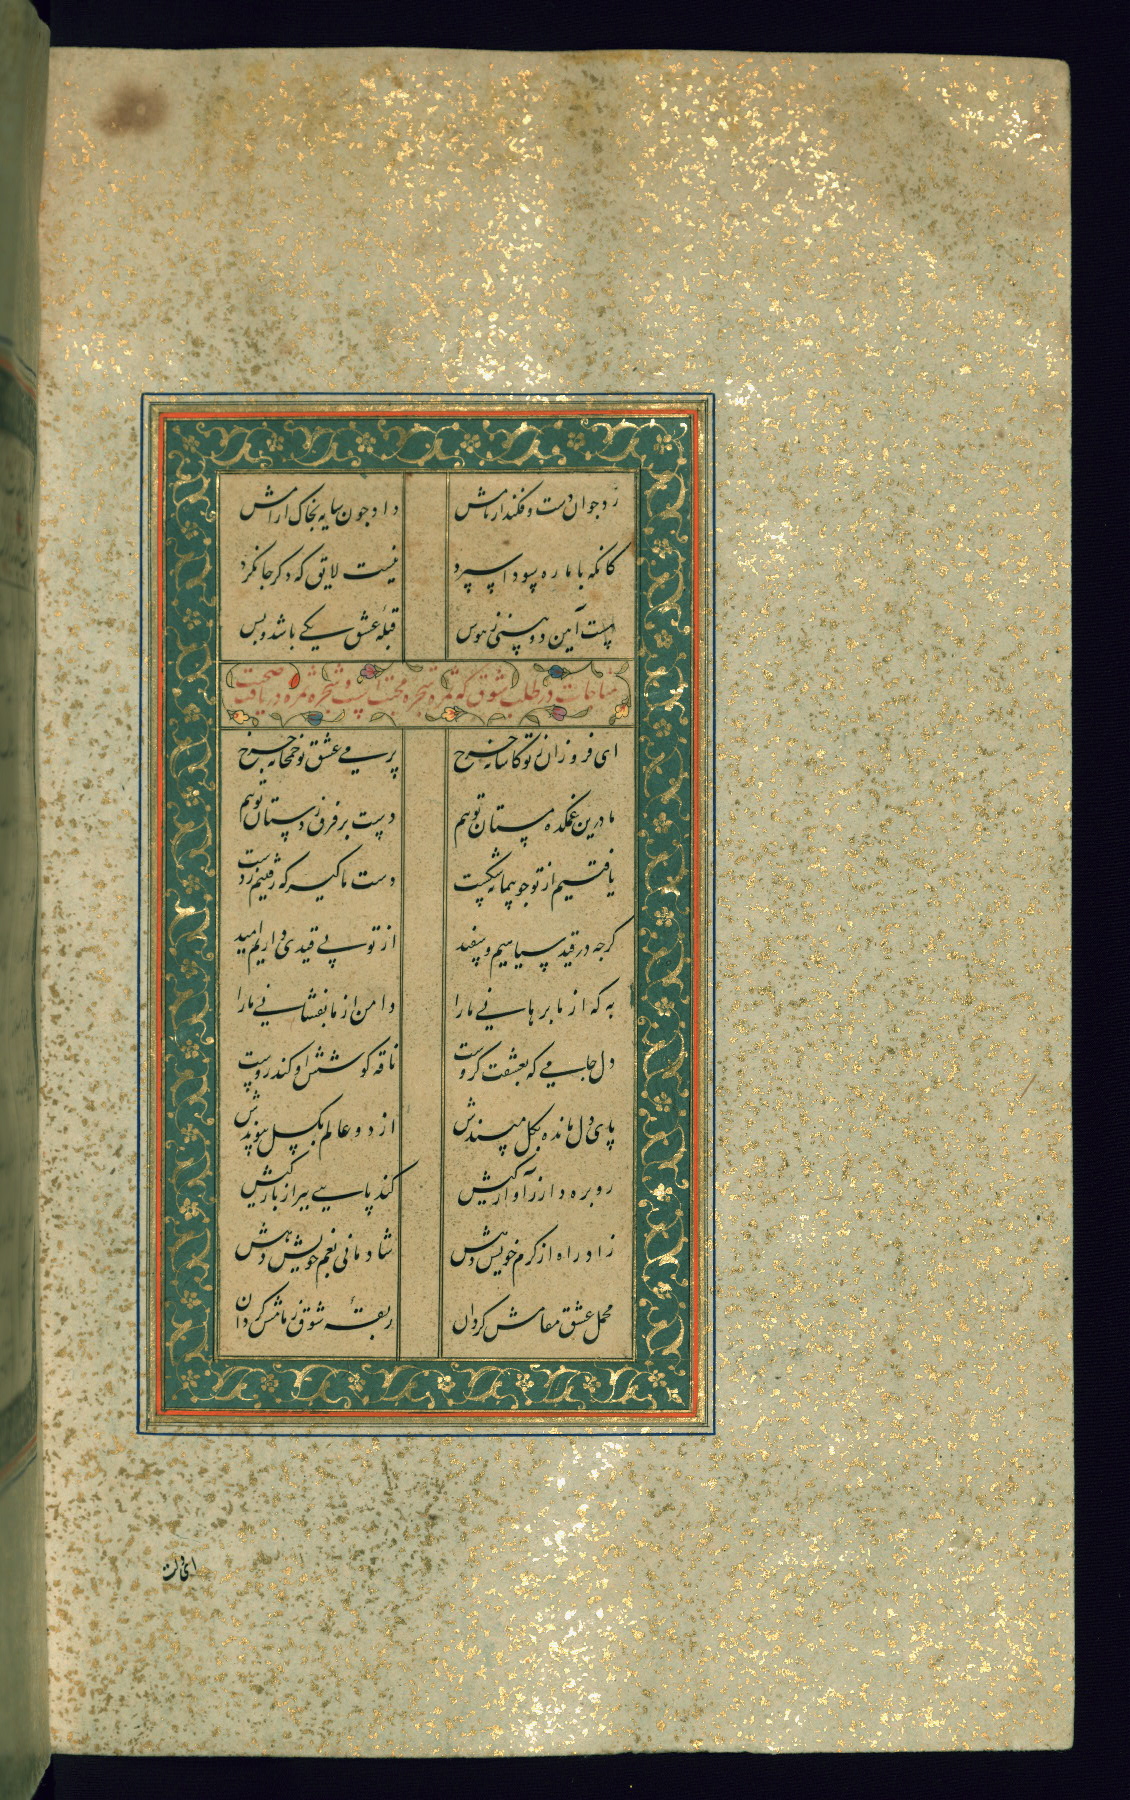 زد جوان دست و فکند از بامش داد جون سایه بخاک ارامش
کانکه با ما ره سودا سپرد نیست لایق که دکر جا نکرد
هست آیین دو بینی ز هوس قبله عشق یکی باشد و بس
مناجات در طلب شوق که ثمره شجره محبت است و شجره ثمره دریافت صحبت
ای فروزان ز تو کاشانه چرخ پر می عشق تو خمخانه چرخ
ما درین غمکده مستان توییم دست بر فرق ز دستان توییم
یافتیم از تو جو پیمانه شکست دست ما کیر که رفتیم ز دست
کرجه در قید سیاهیم و سفید از تو بی قیدی داریم امید
به که از ما برهانی ما را دامن از ما نفشانی ما را
دل جامی که بعشقت کروست ناقه کوشش او کندروست
پای دل مانده بکل مپسندش از دو عالم بکسل پیوندش
رو بره دار ز آوارکیش کند پایی ببر از بارکیش
زاد راه از کرم خویش دهش شادمانی بغم خویش دهش
محمل عشق مقامش کردان ربقه شوق زمامش کردان